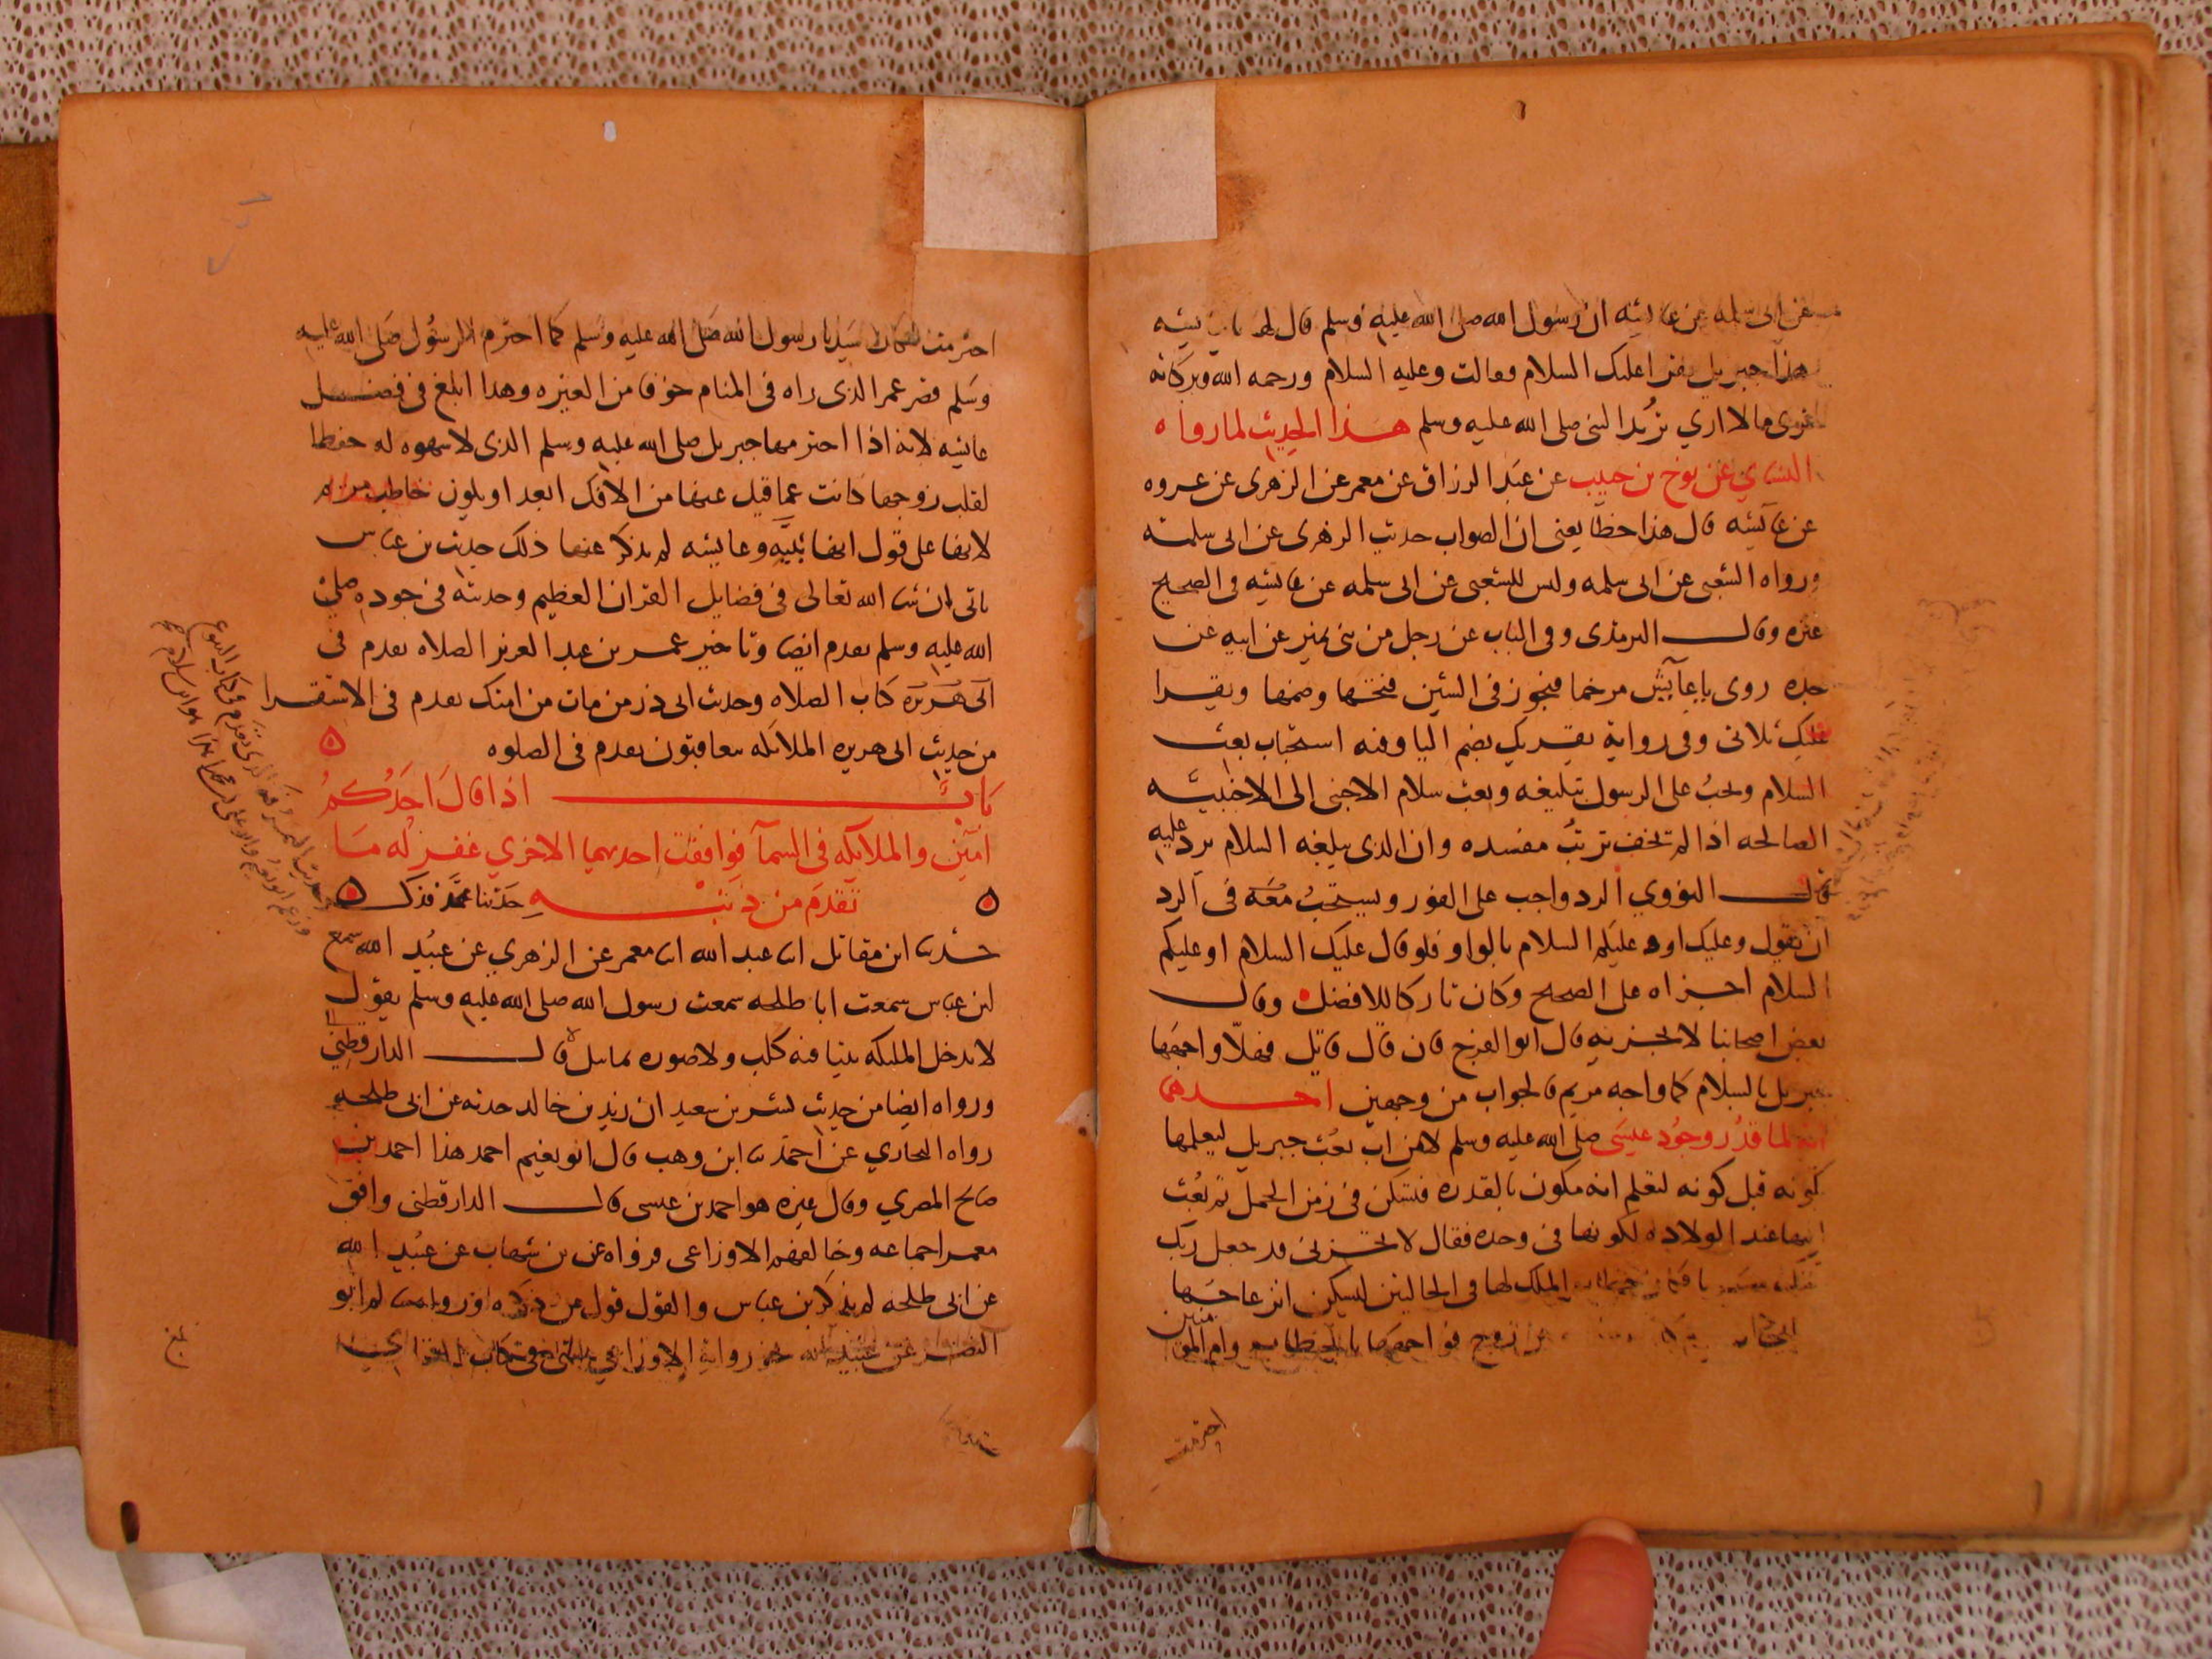 عن ابى سلمه عن عايشه ان رسول الله صلى الله عليه وسلم قال لها يا عايشه
هذا جبريل يقرا عليك السلام وقالت وعليه السلام ورحمه الله وبركاته
ترى ما لا اري تريد النبى صلى الله عليه وسلم هذا الحديث لما رواه
النساي عن نوح بن حبيب عن عبد الرزاق عن معمر عن الزهرى عن عروه
عن عايشه قال هذا خطا يعنى ان الصواب حديث الزهرى عن ابى سلمه
ورواه الشعبى عن ابى سلمه وليس للشعبى عن ابى سلمه عن عايشه فى الصحيح
غيره وقال الترمذى وفى الباب عن رجل من بنى نمير عن ابيه عن
جده روى يا عآيش مرخما فيجوز فى الشين فتحها وضمها ويقرا
عليك ثلاثى وفى رواية يقريك بضم اليا وفيه استحباب بعث
السلام ويجب على الرسول تبليغه وبعث سلام الاجنبى الى الاجنبيه
الصالحه اذا لم تخف ترتب مفسده وان الذى يبلغه السلام يرد عليه
قال النووي الرد واجب على الفور ويستحب معه فى الرد
ان يقول وعليك او وعليكم السلام بالواو فلو قال عليك السلام او عليكم
السلام اجزاه على الصحيح وكان تاركا للافضل وقال
بعض اصحابنا لا يجزيه قال ابو الفرج فان قال قايل فهلا واجهها
جبريل بالسلام كما واجه مريم فالجواب من وجهين احدهما
انه لما قدر وجود عيسى صلى الله عليه وسلم لا من اب بعث جبريل ليعلمها
كونه قبل كونه لتعلم انه يكون بالقدره فتسكن فى زمن الحمل ثم بعث
اليها عند الولاده لكونها فى وحده فقال لا تحزنى قد جعل ربك
تحتك سريا فكان خطاب الملك لها فى الحالين لتسكين انزعاجها
زوج فواجهها بالخطاب وام المومنين
احترمت
احترمت لمكان سيدنا رسول الله صلى الله عليه وسلم كما احترم الرسول صلى الله عليه
وسلم قصر عمر الذى راه فى المنام خوفا من الغيره وهذا ابلغ فى فضل
عايشه لانه اذا احترمها جبريل صلى الله عليه وسلم الذى لا شهوه له حفظا
لقلب زوجها كانت عما قيل عنها من الافك ابعد او يكون خاطب مريم
لانها على قول انها نبيه وعايشه لم يذكر عنها ذلك حديث بن عباس
ياتى ان شا الله تعالى فى فضايل القران العظيم وحديثه فى جوده صلى
الله عليه وسلم تقدم ايضا وتاخير عمر بن عبد العزيز الصلاه تقدم فى
الى هريره كتاب الصلاه وحديث ابى ذر من مات من امتك تقدم فى الاستقرا
من حديث ابى هريره الملايكه يتعاقبون تقدم فى الصلوه
باب اذا قال احدكم
امين والملايكه فى السمآ فوافقت احديهما الاخري غفر له ما
تقدم من ذنبه حدثنا محمد فذكر
حدثنا ابن مقاتل انا عبد الله انا معمر عن الزهري عن عبيد الله سمع
ابن عباس سمعت ابا طلحه سمعت رسول الله صلى الله عليه وسلم يقول
لا تدخل المليكه بيتا فيه كلب ولا صوره تماثيل قال الدارقطني
ورواه ايضا من حديث بسر بن سعيد ان زيد بن خالد حدثه عن ابى طلحه
رواه البخاري عن احمد ثنا ابن وهب قال ابو نعيم احمد هذا احمد بن
صالح المصري وقال غيره هو احمد بن عيسى قال الدارقطنى وافق
معمرا جماعه وخالفهم الاوزاعى فرواه عن بن شهاب عن عبيد الله
عن ابى طلحه لم يذكر بن عباس والقول قول من ذكره او رواه سالم ابو
النضر عن عبيد الله نحو رواية الاوزاعي
بلغ